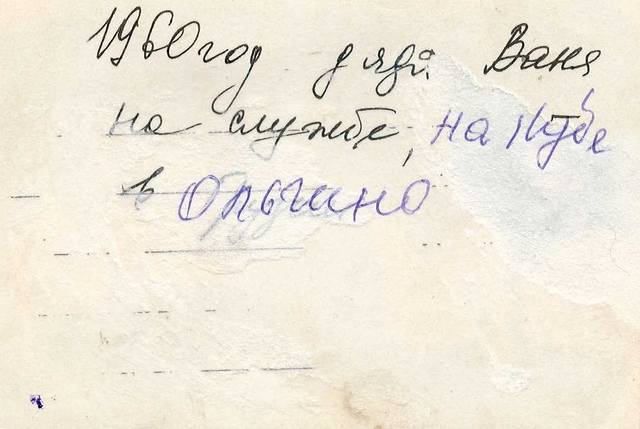 1960 год дядя Ваня
на службе, на Кубе
в Ольгино